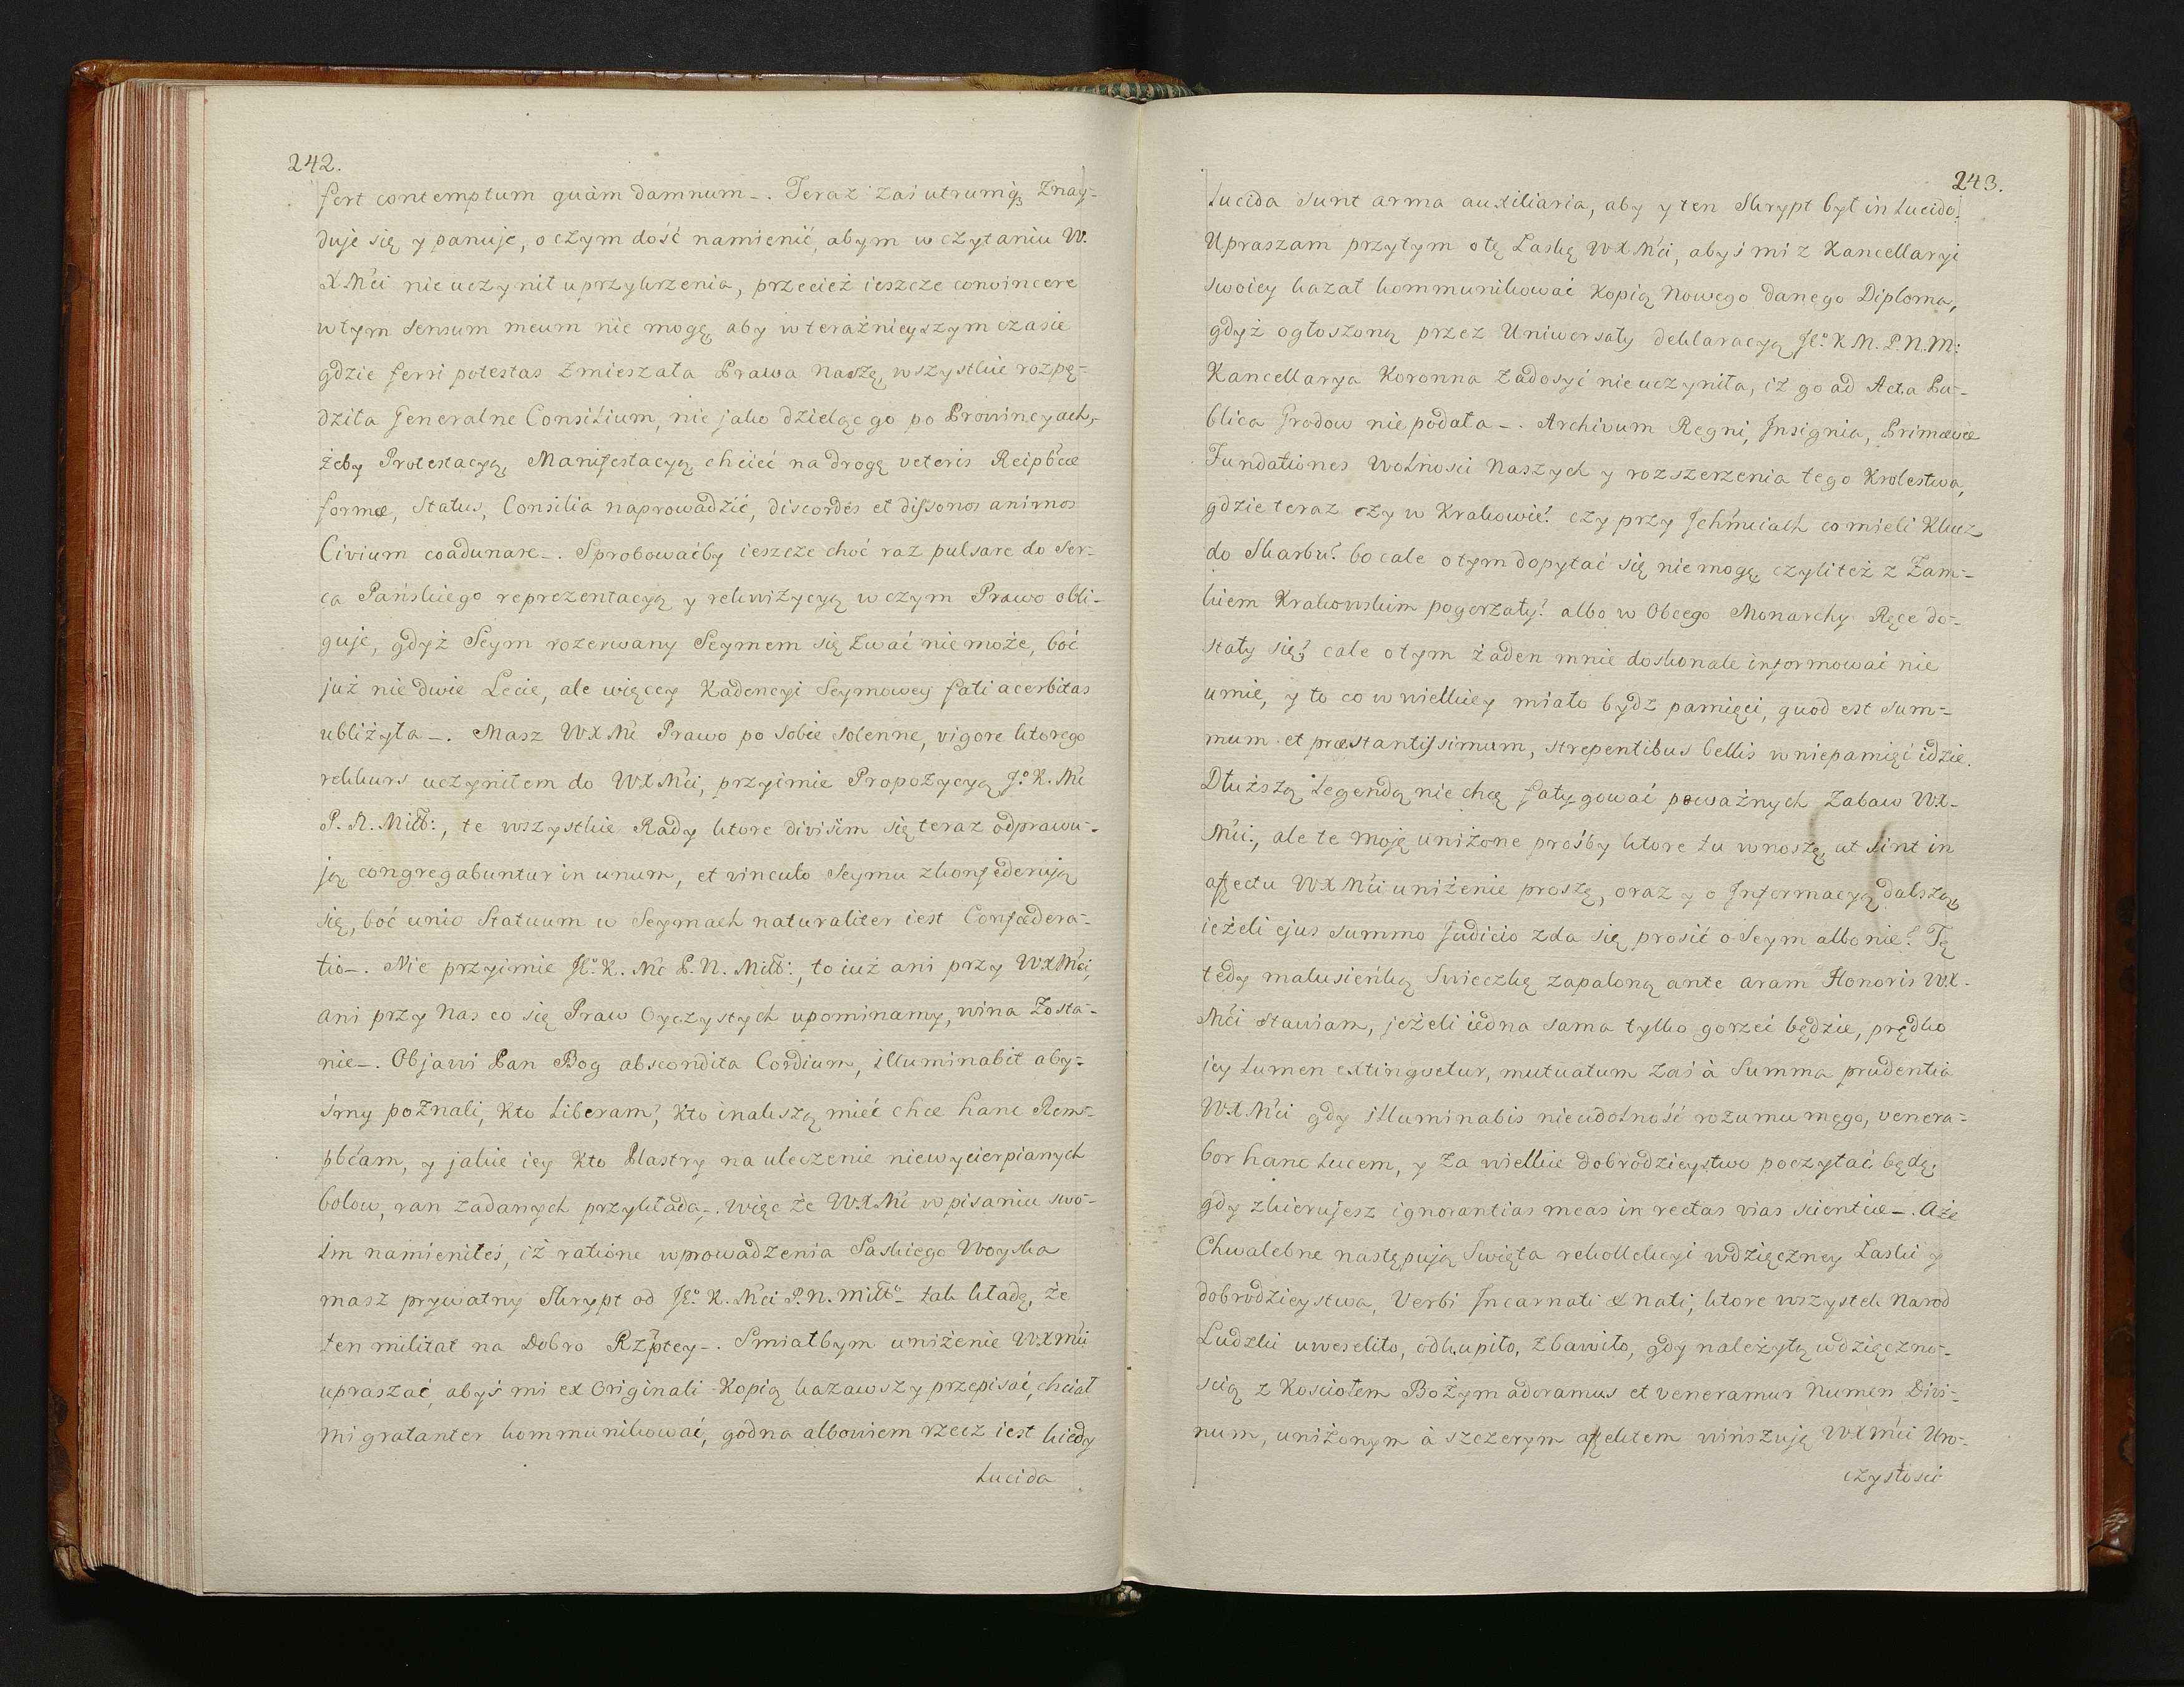 242.
fert contemptum quàm damnum_. Teraz zaś utrumq3 znay-
duje się y panuje, o czym dość namienić, abym w czytaniu W.
X Mći nie uczynił uprzykrzenia, przecież ieszcze convincere
w tym sensum meum nie mogę, aby w teraźnieyszym czasie
gdzie ferri potestas zmieszała Prawa Naszę, wszystkie rozpę-
dziła Generalne Consilium, nie jako dzieląc go po Prowincyach,
żeby Protestacyą, Manifestacyą chcieć na drogę veteris Reipb́cæ
formæ, Status, Consilia naprowadzić, discordes et dissonos animos
Civium coadunare_. Sprobowaćby ieszcze choć raz pulsare do Ser-
ca Pańskiego reprezentacyą y rekwizycyą w czym Prawo obli-
guje, gdyż Seym rozerwany Seymem się zwać nie może, boć
już nie dwie Lecie, ale więcey Kadencyi Seymowey fati acerbitas
ubliżyła_. Masz WXMć Prawo po sobie solenne, vigore ktorego
rekkurs uczyniłem do WXMći, przyimie Propozycyą Jº. K. Mć
P. N. Miłł:, te wszystkie Rady ktore divisim się teraz odprawu-
ją congregabuntur in unum, et vinculo Seymu zkonfederują
się, boć unio Statuum w Seymach naturaliter iest Confædera-
tio_. Nie przyimie Jº. K. Mć P. N. Miłł:, to iuż ani przy WXMći,
ani przy Nas co się Praw Oyczystych upominamy, wina zosta-
nie_. Objawi Pan Bog abscondita Cordium, illuminabit aby-
śmy poznali, Kto Liberam? Kto inakszą mieć chce hanc Rem-
pb́cam, y jakie iey Kto Plastry na uleczenie niewycierpianych
bolow, ran zadanych przykłada_. Więc że WXMć w pisaniu swo-
im namieniłeś, iż ratione wprowadzenia Saskiego Woyska
masz prywatny Skrypt od Jº. K. Mći P. N. Miłłº_ tak kładę, że
ten militat na Dobro Rzptey_. Smiałbym uniżenie WXMći
upraszać, abyś mi ex Originali Kopią kazawszy przepisać, chciał
mi gratanter kommunikować, godna albowiem rzecz iest kiedy
Lucida
243.
Lucida sunt arma auxiliaria, aby y ten Skrypt był in Lucido.
Upraszam przytym o tę Łaskę WXMći, abyś mi z Kancellaryi
swoiey kazał kommunikować Kopią Nowego danego Diploma,
gdyż ogłoszoną przez Uniwersały deklaracyą Jº. K. M. P. N. M:
Kancellarya Koronna zadosyć nie uczyniła, iż go ad Acta Pu-
blica Grodow nie podała_. Archivum Regni, Insignia, Primævæ
Fundationes Wolności Naszych y rozszerzenia tego Krolestwa,
gdzie teraz czy w Krakowie? czy przy Jchmciach co mieli Klucz
do Skarbu? bo cale o tym dopytać się nie mogę, czyli też z Zam-
kiem Krakowskim pogorzały? albo w Obcego Monarchy Ręce do-
stały się? cale o tym żaden mnie doskonale informować nie
umie, y to co w wielkiey miało bydz pamięci, quod est sum-
mum et præstantissimum, strepentibus bellis w niepamięć idzie.
Dłuższą Legendą nie chcę fatygować poważnych zabaw WX-
Mći:, ale te moję uniżone prośby ktore tu wnoszę, ut sint in
affectu WXMći uniżenie proszę, oraz y o Informacyą dalszą,
ieżeli ejus summo Judicio zda się prosić o Seym albo nie? Tę
tedy malusieńką Swieczkę zapaloną ante aram Honoris WX-
Mći stawiam, jeżeli iedna sama tylko gorzeć będzie, prędko
iey Lumen extingvetur, mutuatum zaś à Summa prudentia
WXMći gdy illuminabis nieudolność rozumu mego, venera-
bor hanc Lucem, y za wielkie dobrodzieystwo poczytać będę,
gdy zkierujesz ignorantias meas in rectas vias scientiæ_. A że
Chwalebne następują Swięta rekollekcyi wdzięczney Łaski y
dobrodzieystwa, Verbi Incarnati & nati, ktore wszystek Narod
Ludzki uweseliło, odkupiło, zbawiło, gdy należytą wdzięczno-
scią z Kosciołem Bożym adoramus et veneramur Numen Divi-
num, uniżonym à szczerym affektem winszuję WXMći Uro-
czystosci